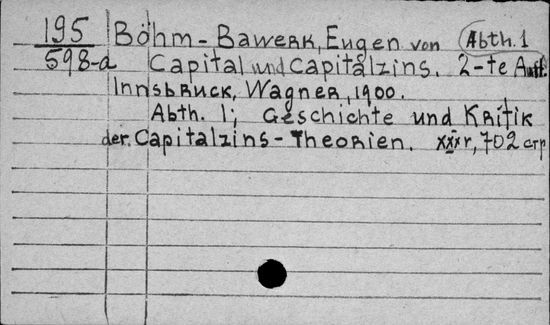 195 Böhm-Bawerk, Eugen von Abth. 1
598-a Capital und Capitalzins. 2-te Aufl.
Innsbruck, Wagner, 1900.
Abth. 1; Geschichte und Kritik
der Capitalzins-Theorien. 702 стр